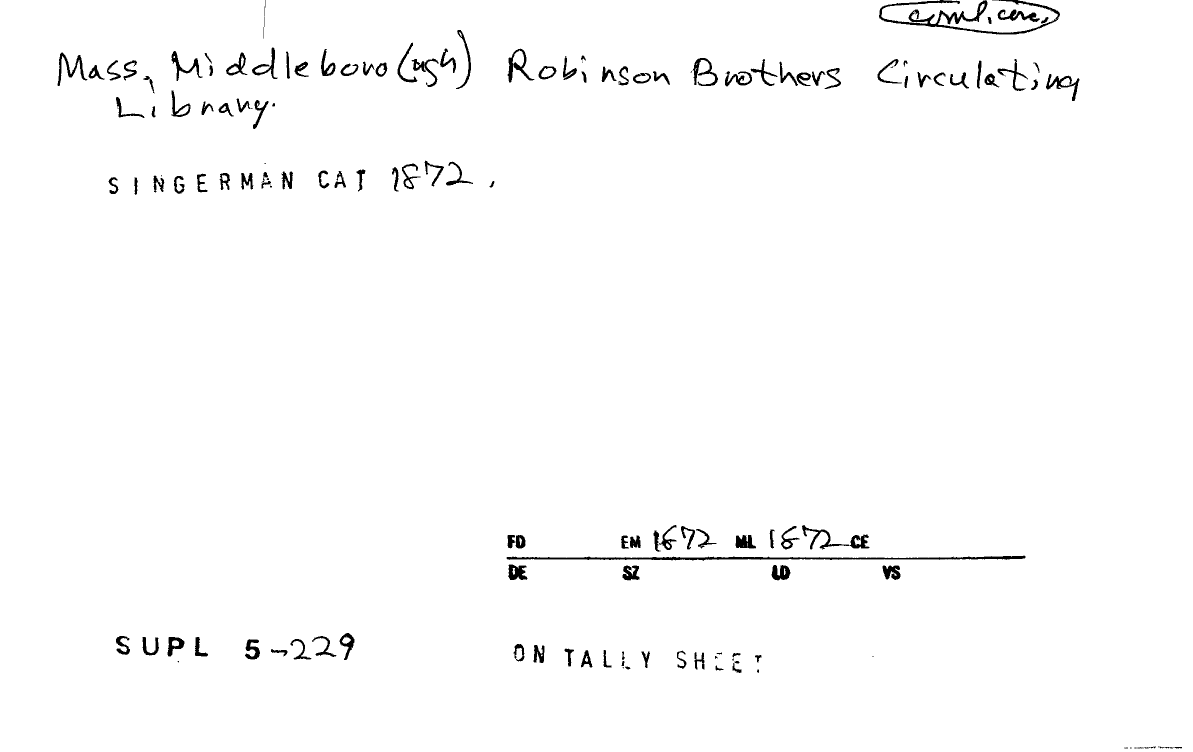 coml. circ.
Mass, Middleboro(ugh) Robinson Brothers Circulating
Library.
SINGERMAN CAT 1872.
FD EM 1872 ML 1872 CE
DE SZ LD VS
SUPL 5-229 ON TALLY SHEET